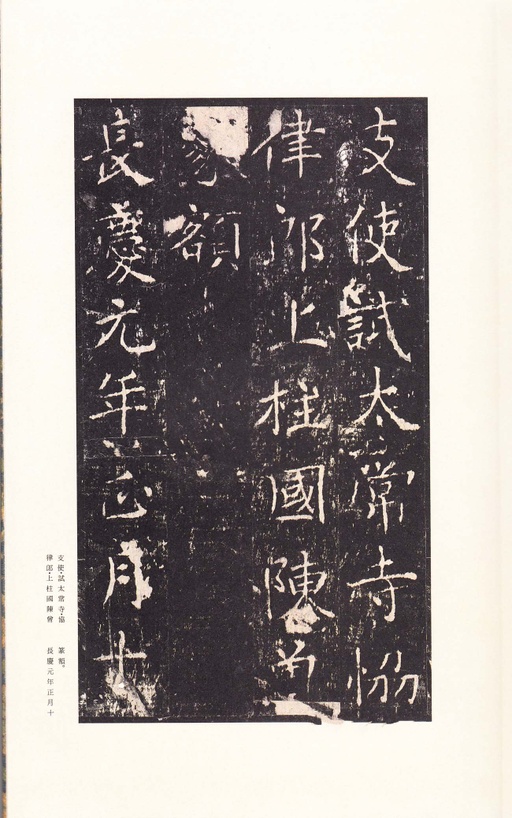 支使試太常寺協
律郎上柱國陳曾
篆額
長慶元年正月十
支使・試太常寺・協
律郎・上柱國陳曾
篆額。
長慶元年正月十